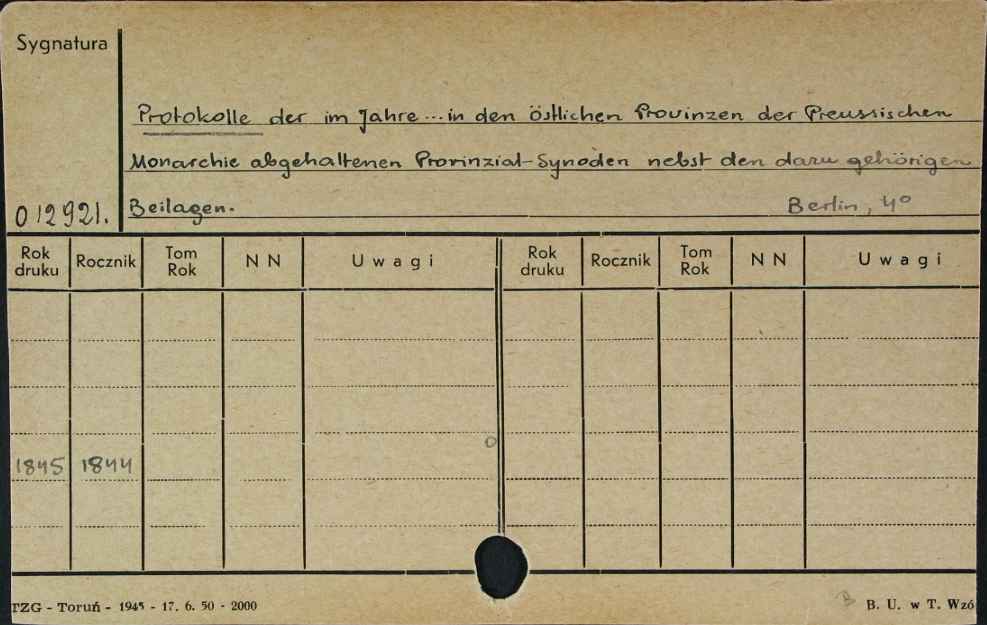 Sygnatura
Protokolle der im Jahre ... in den östlichen Provinzen der Preussischen
Monarchie abgehaltenen Provinzial-Synoden nebst den dazu gehörigen
012921. Beilagen. Berlin, 4°
Rok druku Rocznik Tom Rok NN Uwagi Rok druku Rocznik Tom Rok NN Uwagi
1845 1844
TZG - Toruń - 1945 - 17. 6. 50 - 2000 B B. U. w T. Wzó